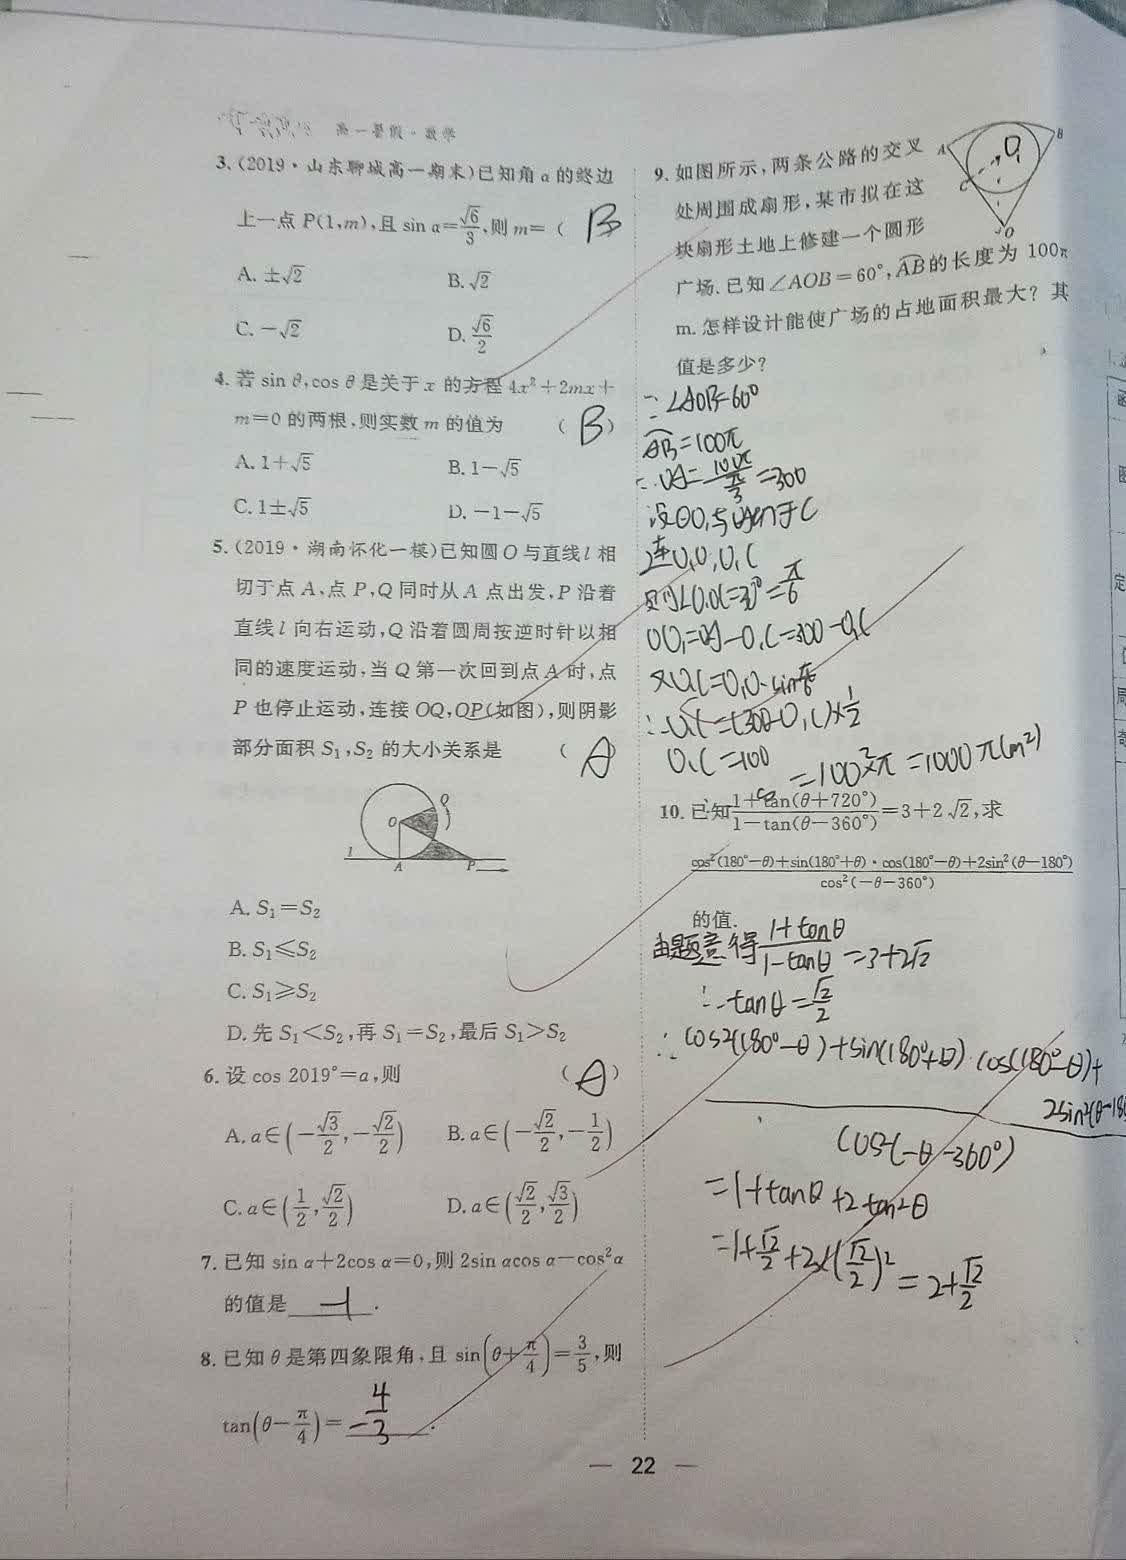 高一暑假·数学
3.(2019·山东聊城高一期末)已知角α的终边
上一点P(1,m),且sin α=√6/3,则m=( B
A.±√2 B.√2
C.-√2 D.√6/2
4.若sin θ,cos θ是关于x的方程4x²+2mx+
m=0的两根,则实数m的值为 ( B )
A.1+√5 B.1-√5
C.1±√5 D.-1-√5
5.(2019·湖南怀化一模)已知圆O与直线l相
切于点A,点P,Q同时从A点出发,P沿着
直线l向右运动,Q沿着圆周按逆时针以相
同的速度运动,当Q第一次回到点A时,点
P也停止运动,连接OQ,OP(如图),则阴影
部分面积S₁,S₂的大小关系是 ( A )
Q
O
l A P
A.S₁=S₂
B.S₁≤S₂
C.S₁≥S₂
D.先S₁<S₂,再S₁=S₂,最后S₁>S₂
6.设cos 2019°=a,则 ( A )
A.a∈(-√3/2,-√2/2) B.a∈(-√2/2,-1/2)
C.a∈(1/2,√2/2) D.a∈(√2/2,√3/2)
7.已知sin α+2cos α=0,则2sin αcos α-cos²α
的值是 -1 .
8.已知θ是第四象限角,且sin(θ+π/4)=3/5,则
tan(θ-π/4)= -4/3 .
9.如图所示,两条公路的交叉
处周围成扇形,某市拟在这
块扇形土地上修建一个圆形
广场.已知∠AOB=60°,AB的长度为100π
m.怎样设计能使广场的占地面积最大?其
值是多少?
A B
O₁
C
O
∵∠AOB=60°
AB=100π
∴OA=100π/(π/3)=300
设⊙O₁与OA切于C
连O₁O,O₁C
则∠O₁OC=30°=π/6
OO₁=OA-O₁C=300-O₁C
又O₁C=O₁O·sinπ/6
∴O₁C=(300-O₁C)×1/2
O₁C=100
=100²×π=1000π(m²)
10.已知(1+tan(θ+720°))/(1-tan(θ-360°))=3+2√2,求
(cos²(180°-θ)+sin(180°+θ)·cos(180°-θ)+2sin²(θ-180°))/(cos²(-θ-360°))
的值.
由题意得(1+tanθ)/(1-tanθ)=3+2√2
∴tanθ=√2/2
∴cos²(180°-θ)+sin(180°+θ)·cos(180°-θ)+
2sin²(θ-18
cos²(-θ-360°)
=1+tanθ+2tan²θ
=1+√2/2+2×(√2/2)²=2+√2/2
22